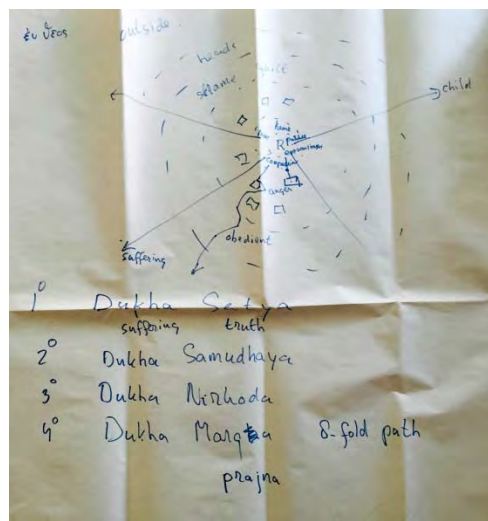 outside
heads
guilt
shame
child
R
compassion
anger
obedient
suffering
1° Dukha Satya
suffering truth
2° Dukha Samudhaya
3° Dukha Nirhoda
4° Dukha Marga 8-fold path
prajna